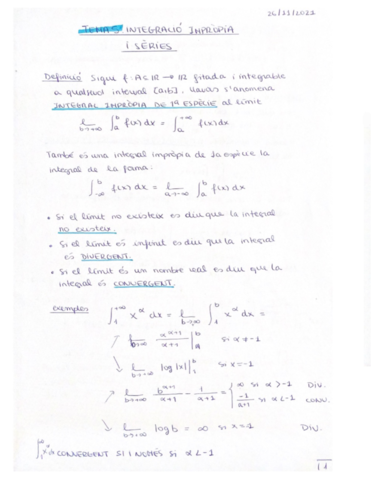 26/11/2021
TEMA 5 INTEGRACIÓ IMPRÒPIA
I SÈRIES
Definició Sigui f: A⊂ℝ → ℝ fitada i integrable
a qualsevol interval [a,b], llavors s'anomena
INTEGRAL IMPRÒPIA DE 1ª ESPÈCIE al límit
l_{b→∞} ∫_a^b f(x) dx = ∫_a^{+∞} f(x) dx
També és una integral impròpia de 1a espècie la
integral de la forma:
∫_{-∞}^b f(x) dx = l_{a→-∞} ∫_a^b f(x) dx
• Si el límit no existeix es diu que la integral
no existeix.
• Si el límit és infinit es diu que la integral
és DIVERGENT.
• Si el límit és un nombre real es diu que la
integral és CONVERGENT.
exemples ∫_1^{+∞} x^α dx = l_{b→∞} ∫_1^b x^α dx =
↗ l_{b→∞} x^{α+1}/α+1 |_1^b si α≠-1
↘ l_{b→∞} log|x| |_1^b si x=-1
↗ l_{b→∞} b^{α+1}/α+1 - 1/α+1 = { ∞ si α>-1 DIV.
-1/α+1 si α<-1 CONV.
↘ l_{b→∞} log b = ∞ si x=-1 DIV.
∫_1^∞ x^α CONVERGENT SI I NOMÉS SI α<-1